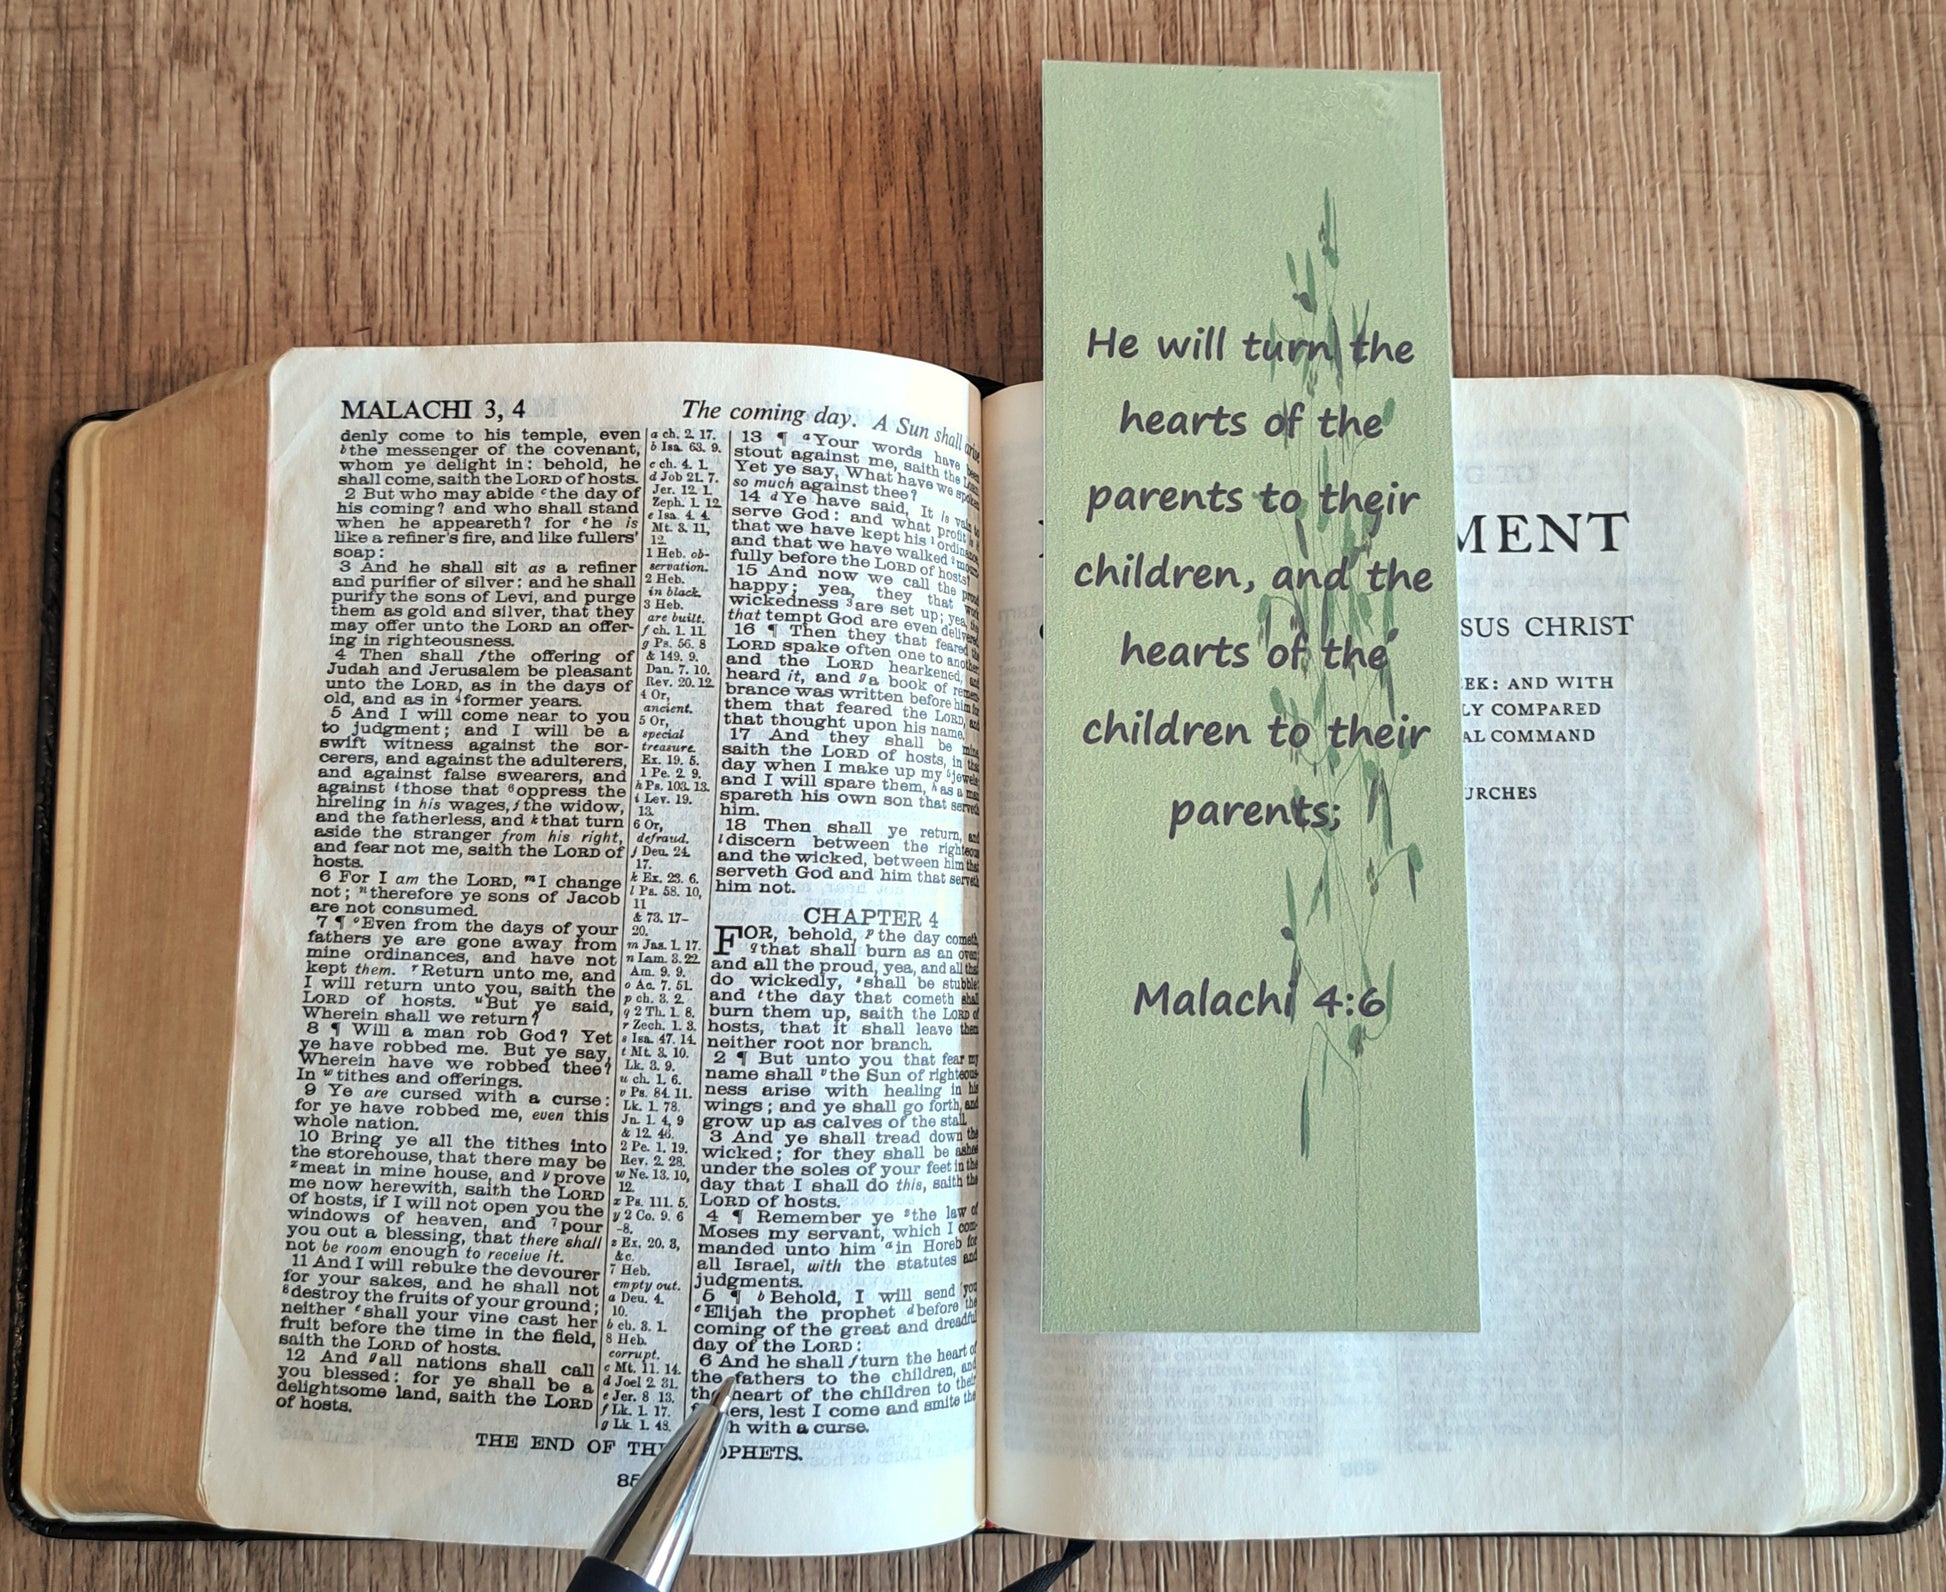 MALACHI 3, 4
The coming day. A Sun shall arise
denly come to his temple, even
b the messenger of the covenant,
whom ye delight in: behold, he
shall come, saith the LORD of hosts.
2 But who may abide c the day of
his coming? and who shall stand
when he appeareth? for e he is
like a refiner's fire, and like fullers'
soap:
3 And he shall sit as a refiner
and purifier of silver: and he shall
purify the sons of Levi, and purge
them as gold and silver, that they
may offer unto the LORD an offer-
ing in righteousness.
4 Then shall f the offering of
Judah and Jerusalem be pleasant
unto the LORD, as in the days of
old, and as in 4 former years.
5 And I will come near to you
to judgment; and I will be a
swift witness against the sor-
cerers, and against the adulterers,
and against false swearers, and
against i those that 6 oppress the
hireling in his wages, j the widow,
and the fatherless, and k that turn
aside the stranger from his right,
and fear not me, saith the LORD of
hosts.
6 For I am the LORD, m I change
not; n therefore ye sons of Jacob
are not consumed.
7 ¶ o Even from the days of your
fathers ye are gone away from
mine ordinances, and have not
kept them. r Return unto me, and
I will return unto you, saith the
LORD of hosts. u But ye said,
Wherein shall we return?
8 ¶ Will a man rob God? Yet
ye have robbed me. But ye say,
Wherein have we robbed thee?
In w tithes and offerings.
9 Ye are cursed with a curse:
for ye have robbed me, even this
whole nation.
10 Bring ye all the tithes into
the storehouse, that there may be
z meat in mine house, and y prove
me now herewith, saith the LORD
of hosts, if I will not open you the
windows of heaven, and 7 pour
you out a blessing, that there shall
not be room enough to receive it.
11 And I will rebuke the devourer
for your sakes, and he shall not
8 destroy the fruits of your ground;
neither e shall your vine cast her
fruit before the time in the field,
saith the LORD of hosts.
12 And g all nations shall call
you blessed: for ye shall be a
delightsome land, saith the LORD
of hosts.
a ch. 2. 17.
b Isa. 63. 9.
c ch. 4. 1.
d Job 21. 7.
Jer. 12. 1.
Zeph. 1. 12.
e Isa. 4. 4.
Mt. 3. 11,
12.
1 Heb. ob-
servation.
2 Heb.
in black.
3 Heb.
are built.
f ch. 1. 11.
g Ps. 56. 8
& 149. 9.
Dan. 7. 10.
Rev. 20. 12.
4 Or,
ancient.
5 Or,
special
treasure.
Ex. 19. 5.
1 Pe. 2. 9.
h Ps. 103. 13.
i Lev. 19.
13.
6 Or,
defraud.
j Deu. 24.
17.
k Ex. 23. 6.
l Ps. 58. 10,
11
& 73. 17–
20.
m Jas. 1. 17.
n Lam. 3. 22.
Am. 9. 9.
o Ac. 7. 51.
p ch. 3. 2.
q 2 Th. 1. 8.
r Zech. 1. 3.
s Isa. 47. 14.
t Mt. 3. 10.
Lk. 3. 9.
u ch. 1. 6.
v Ps. 84. 11.
Lk. 1. 78.
Jn. 1. 4, 9
& 12. 46.
2 Pe. 1. 19.
Rev. 2. 28.
w Ne. 13. 10,
12.
x Ps. 111. 5.
y 2 Co. 9. 6
–8.
z Ex. 20. 3,
&c.
7 Heb.
empty out.
a Deu. 4.
10.
b ch. 3. 1.
8 Heb.
corrupt.
c Mt. 11. 14.
d Joel 2. 31.
e Jer. 8 13.
f Lk. 1. 17.
g Lk. 1. 48.
13 ¶ a Your words have been
stout against me, saith the LORD.
Yet ye say, What have we spoken
so much against thee?
14 d Ye have said, It is vain to
serve God: and what profit is it
that we have kept his 1 ordinance,
and that we have walked 2 mourn-
fully before the LORD of hosts?
15 And now we call the proud
happy; yea, they that work
wickedness 3 are set up; yea, they
that tempt God are even delivered.
16 ¶ Then they that feared the
LORD spake often one to another:
and the LORD hearkened, and
heard it, and g a book of remem-
brance was written before him for
them that feared the LORD, and
that thought upon his name.
17 And they shall be mine,
saith the LORD of hosts, in that
day when I make up my 5 jewels;
and I will spare them, h as a man
spareth his own son that serveth
him.
18 Then shall ye return, and
l discern between the righteous
and the wicked, between him that
serveth God and him that serveth
him not.
CHAPTER 4
FOR, behold, p the day cometh,
q that shall burn as an oven;
and all the proud, yea, and all that
do wickedly, s shall be stubble:
and t the day that cometh shall
burn them up, saith the LORD of
hosts, that it shall leave them
neither root nor branch.
2 ¶ But unto you that fear my
name shall v the Sun of righteous-
ness arise with healing in his
wings; and ye shall go forth, and
grow up as calves of the stall.
3 And ye shall tread down the
wicked; for they shall be ashes
under the soles of your feet in the
day that I shall do this, saith the
LORD of hosts.
4 ¶ Remember ye z the law of
Moses my servant, which I com-
manded unto him a in Horeb for
all Israel, with the statutes and
judgments.
5 ¶ b Behold, I will send you
c Elijah the prophet d before the
coming of the great and dreadful
day of the LORD:
6 And he shall f turn the heart of
the fathers to the children, and
the heart of the children to their
ers, lest I come and smite the
h with a curse.
THE END OF THE PROPHETS.
He will turn the
hearts of the
parents to their
children, and the
hearts of the
children to their
parents;
Malachi 4:6
MENT
SUS CHRIST
EK: AND WITH
LY COMPARED
AL COMMAND
URCHES